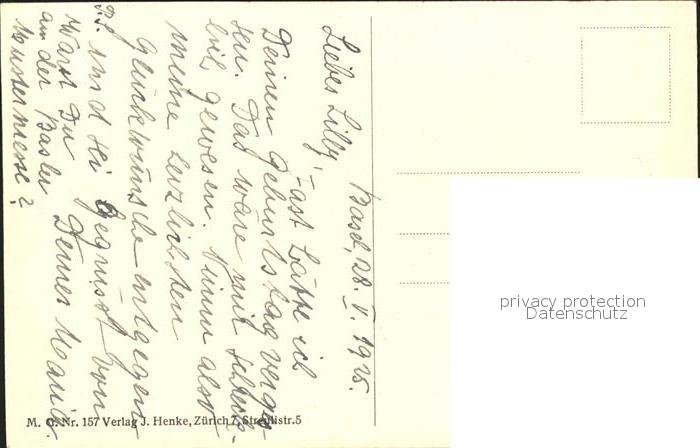 Basel, 28. V. 1925.
Liebes Lilly!
Fast hätte ich
Deinen Geburtstag verges-
sen. Das wäre mir schreck-
lich gewesen. Nimm also
meine herzlichsten
Glückwünsche entgegen
und sei gegrüsst von
Deiner
P.S.
Warst Du
an der Basler
Mustermesse?
M. G. Nr. 157 Verlag J. Henke, Zürich 7, Streulistr. 5
privacy protection
Datenschutz